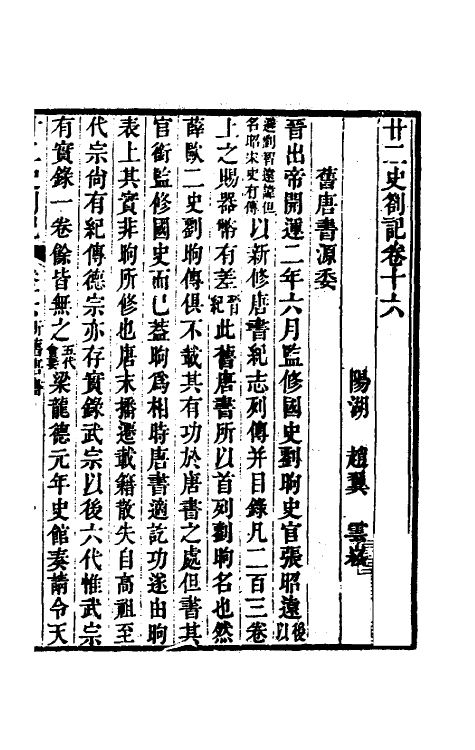 廿二史劄記卷十六
陽湖　趙翼　雲崧
舊唐書源委
晉出帝開運二年六月監修國史劉昫史官張昭遠以後
避劉智遠諱但
名昭宋史有傳以新修唐書紀志列傳并目錄凡二百三卷
上之賜器幣有差晉紀此舊唐書所以首列劉昫名也然
薛歐二史劉昫傳俱不載其有功於唐書之處但書其
官銜監修國史而已蓋昫爲相時唐書適訖功遂由昫
表上其實非昫所修也唐末播遷載籍散失自高祖至
代宗尚有紀傳德宗亦存實錄武宗以後六代惟武宗
有實錄一卷餘皆無之五代會要梁龍德元年史館奏請令天